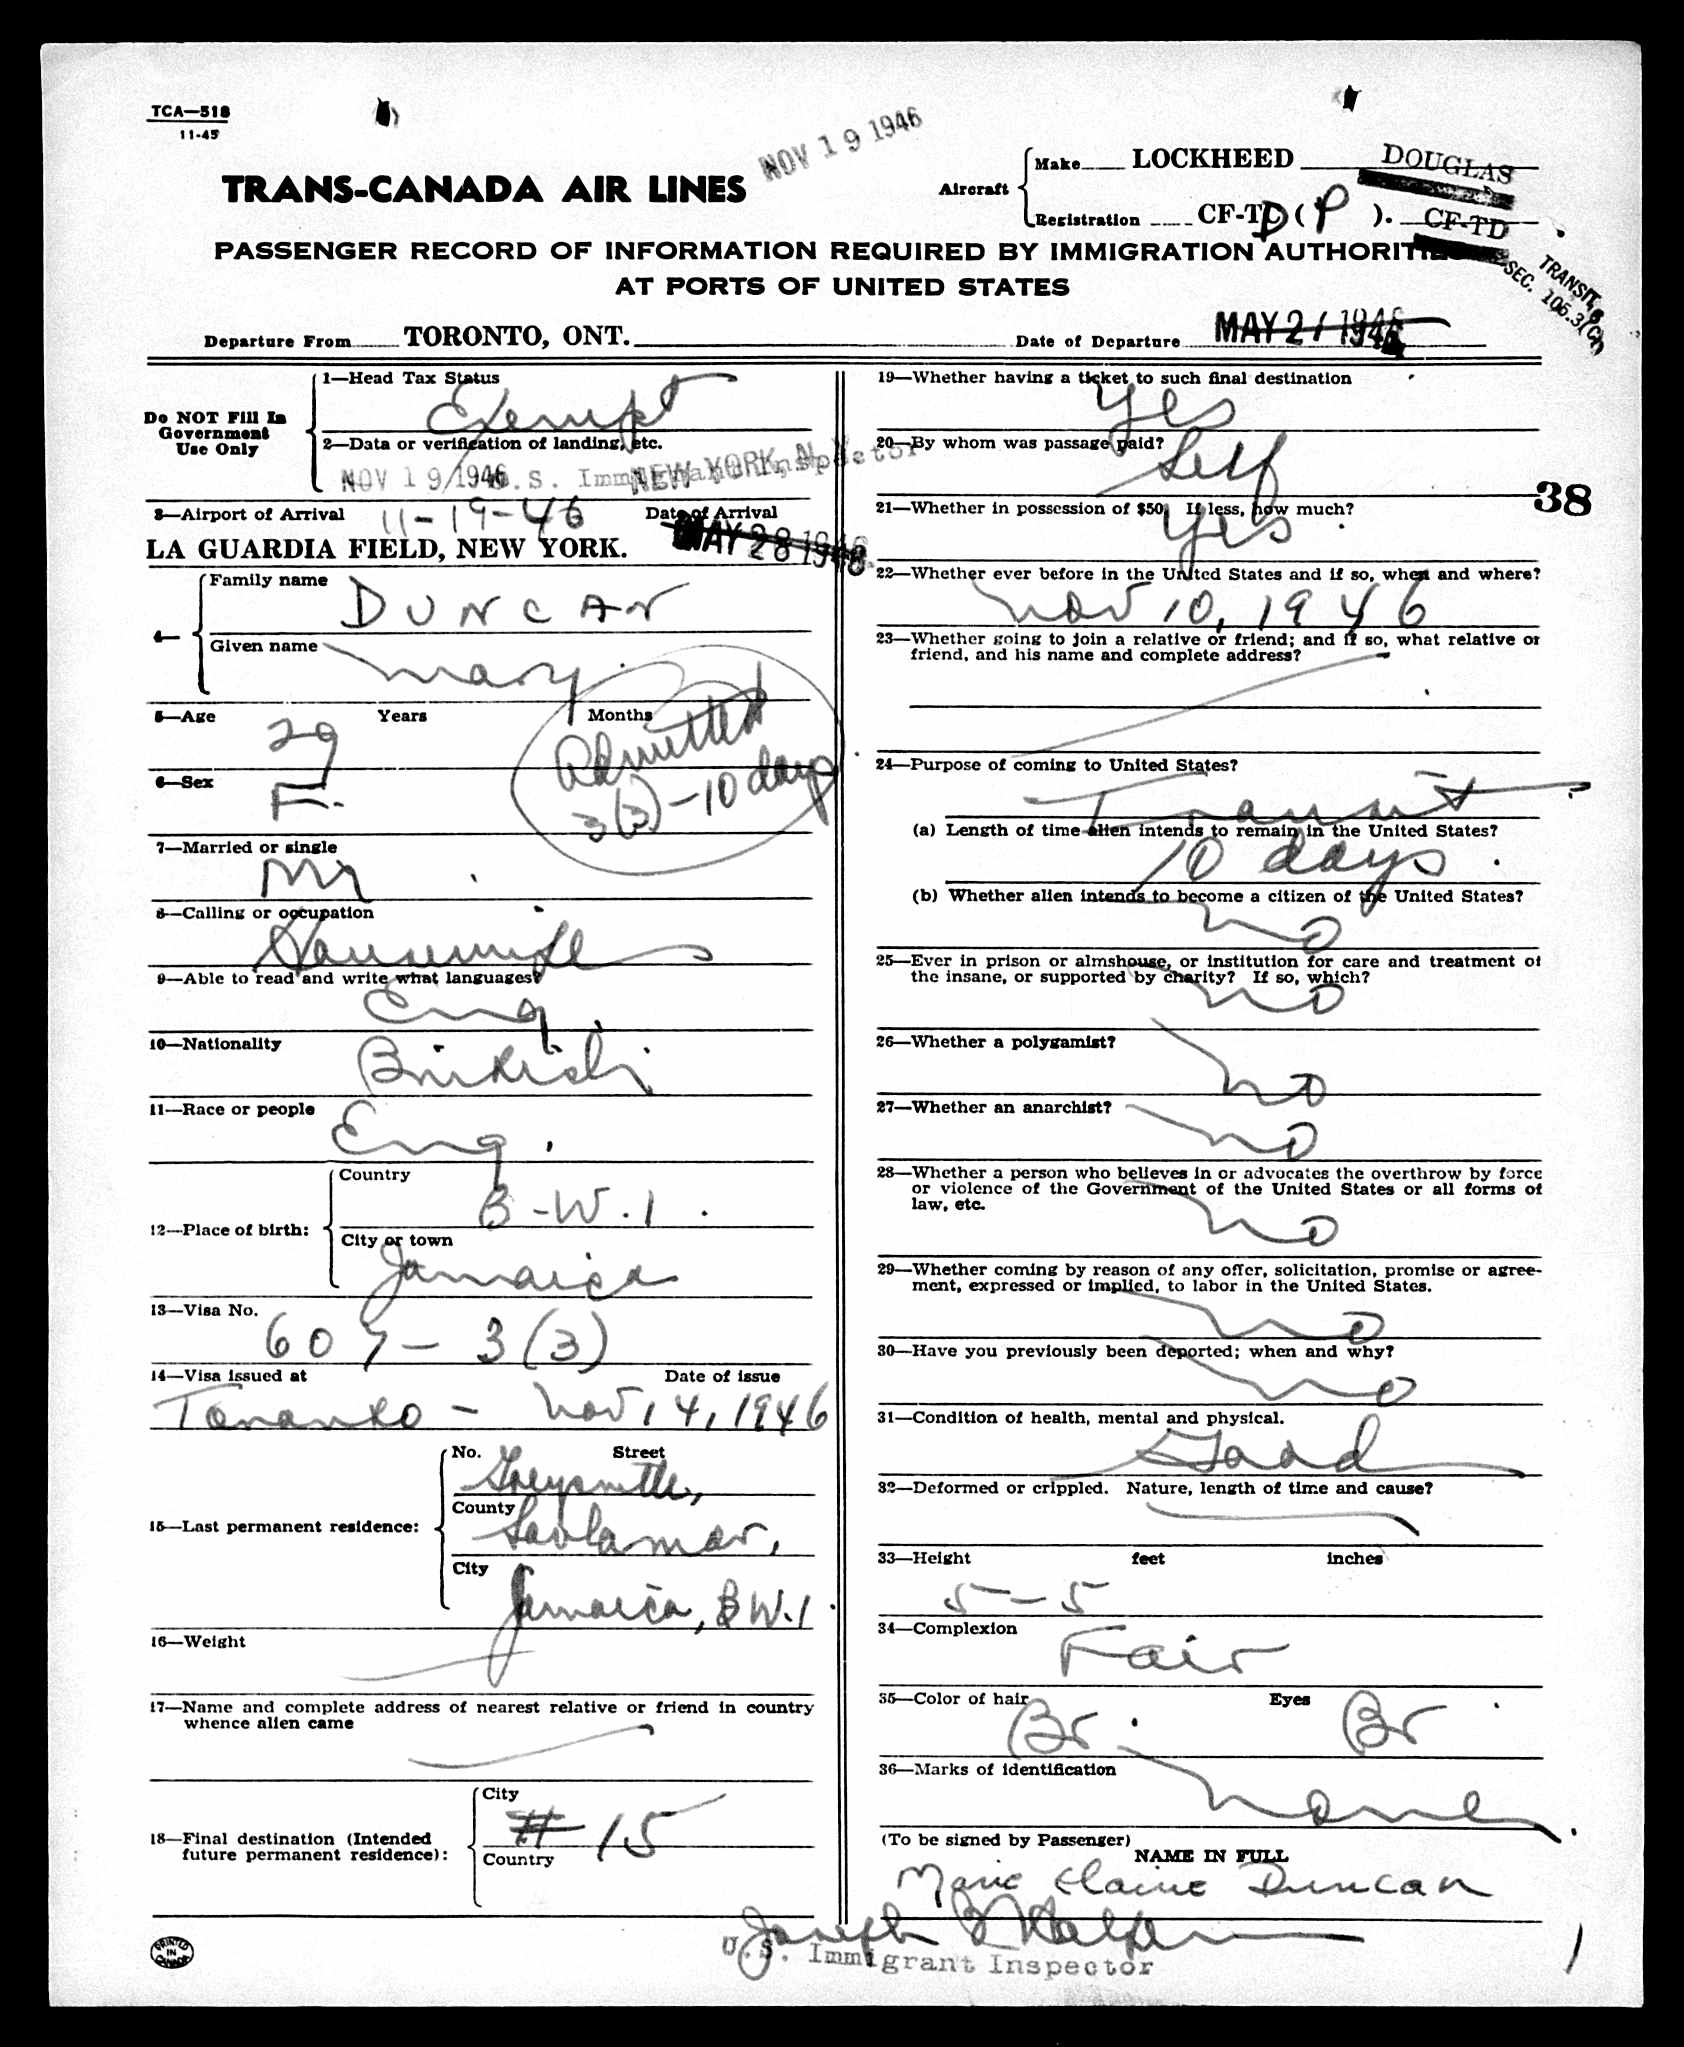 TCA—518
11-45
NOV 19 1946
TRANS-CANADA AIR LINES
Aircraft
Make LOCKHEED DOUGLAS
Registration CF-TC D (P). CF-TD
PASSENGER RECORD OF INFORMATION REQUIRED BY IMMIGRATION AUTHORITIES
AT PORTS OF UNITED STATES
TRANSIT
SEC. 105.3(C)
Departure From TORONTO, ONT. Date of Departure MAY 21 1946
Do NOT Fill In
Government
Use Only
1—Head Tax Status
Exempt
2—Data or verification of landing, etc.
NOV 19 1946 U.S. Immigrant Inspector NEW YORK, N.Y.
3—Airport of Arrival 11-19-46 Date of Arrival
LA GUARDIA FIELD, NEW YORK. MAY 28 1946
4—
Family name
DUNCAN
Given name
Mary
5—Age 29 Years Months
Admitted
3(3) - 10 days
6—Sex F.
7—Married or single
M
8—Calling or occupation
Housewife
9—Able to read and write what languages?
Eng.
10—Nationality
British
11—Race or people
Eng.
12—Place of birth:
Country
B-W.I.
City or town
Jamaica
13—Visa No.
607-3(3)
14—Visa issued at Date of issue
Toronto - Nov 14, 1946
15—Last permanent residence:
No. Street
County
Savlamar,
City
Jamaica, BW.I.
16—Weight
17—Name and complete address of nearest relative or friend in country
whence alien came
18—Final destination (Intended
future permanent residence):
City
# 15
Country
PRINTED
IN
CANADA
19—Whether having a ticket to such final destination
Yes
20—By whom was passage paid?
Self
21—Whether in possession of $50, If less, how much?
Yes
38
22—Whether ever before in the United States and if so, when and where?
Nov 10, 1946
23—Whether going to join a relative or friend; and if so, what relative or
friend, and his name and complete address?
24—Purpose of coming to United States?
Transit
(a) Length of time alien intends to remain in the United States?
10 days.
(b) Whether alien intends to become a citizen of the United States?
no
25—Ever in prison or almshouse, or institution for care and treatment of
the insane, or supported by charity? If so, which?
no
26—Whether a polygamist?
no
27—Whether an anarchist?
no
28—Whether a person who believes in or advocates the overthrow by force
or violence of the Government of the United States or all forms of
law, etc.
no
29—Whether coming by reason of any offer, solicitation, promise or agree-
ment, expressed or implied, to labor in the United States.
no
30—Have you previously been deported; when and why?
no
31—Condition of health, mental and physical.
Good
32—Deformed or crippled. Nature, length of time and cause?
33—Height feet inches
5-5
34—Complexion
Fair
35—Color of hair Eyes
Br. Br
36—Marks of identification
none
(To be signed by Passenger)
NAME IN FULL
Marie Elaine Duncan
Joseph
U.S. Immigrant Inspector